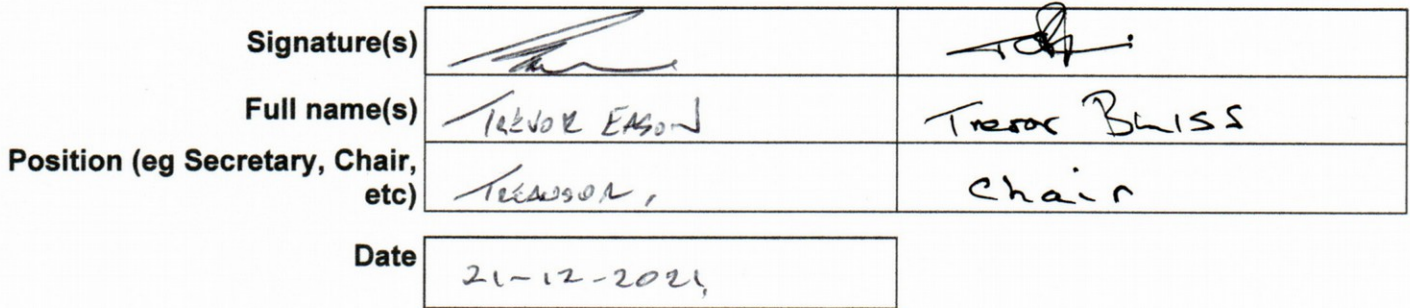 Signature(s)
Full name(s) TREVOR EASON Trevor
Position (eg Secretary, Chair,
etc) Chair
Date 21-12-2021